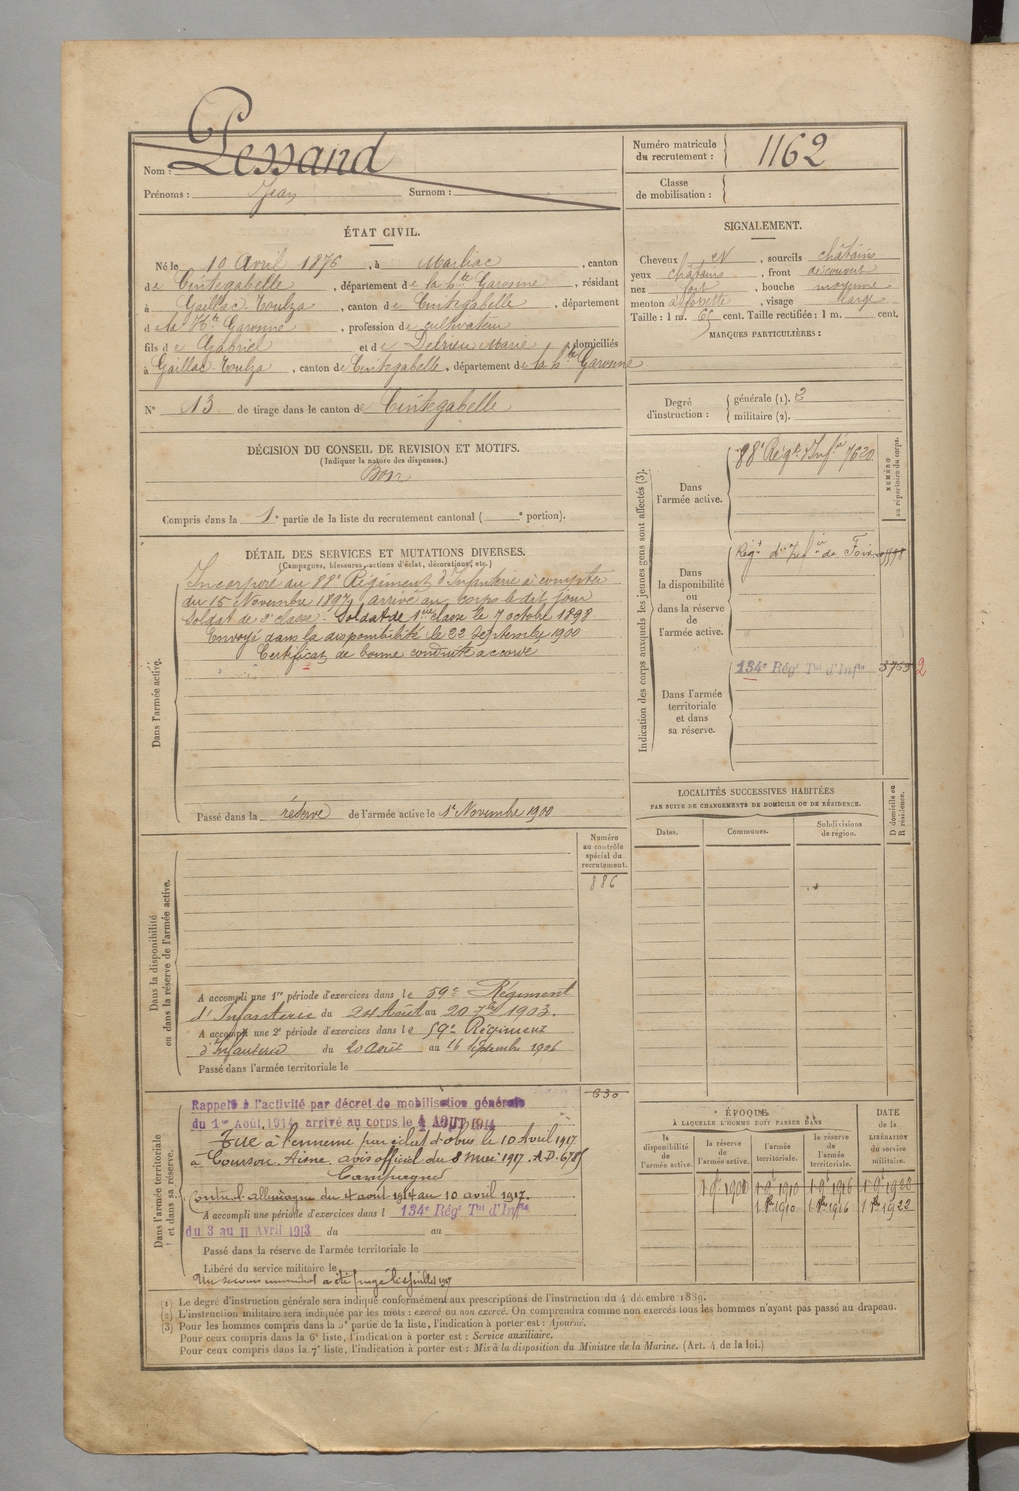 Nom : Pessand
Prénoms : Jean Surnom :
Numéro matricule du recrutement : 1162
Classe de mobilisation :
ÉTAT CIVIL.
Né le 10 Avril 1876, à Marliac, canton
de Cintegabelle, département de la hte Garonne, résidant
à Gaillac-Toulza, canton de Cintegabelle, département
d e la Hte Garonne, profession de cultivateur
fils de Gabriel et de Delrieu Marie domiciliés
à Gaillac-Toulza, canton de Cintegabelle, département de la hte Garonne
N° 13 de tirage dans le canton de Cintegabelle
SIGNALEMENT.
Cheveux N, sourcils châtains
yeux châtains, front découvert
nez fort, bouche moyenne
menton à fossette, visage large
Taille : 1 m. 65 cent. Taille rectifiée : 1 m. cent.
MARQUES PARTICULIÈRES :
Degré d'instruction : générale (1). 3
militaire (2).
DÉCISION DU CONSEIL DE REVISION ET MOTIFS.
(Indiquer la nature des dispenses.)
Bon
Compris dans la 1e partie de la liste du recrutement cantonal ( e portion).
DÉTAIL DES SERVICES ET MUTATIONS DIVERSES.
(Campagnes, blessures, actions d'éclat, décorations, etc.)
Dans l'armée active.
Incorporé au 88e Régiment d'Infanterie à compter
du 15 Novembre 1897, arrivé au corps le dit jour
soldat de 2e classe. Soldat de 1ère classe le 7 octobre 1898.
Envoyé dans la disponibilité le 22 septembre 1900
Certificat de bonne conduite accordé
Passé dans la réserve de l'armée active le 1er Novembre 1900
Indication des corps auxquels les jeunes gens sont affectés (3).
NUMÉRO au répertoire du corps.
Dans l'armée active.
88e Régt d'Infie 7620
Dans la disponibilité ou dans la réserve de l'armée active.
Régt d'Infie de Foix
Dans l'armée territoriale et dans sa réserve.
134e Régt Tal d'Infie 3763 2
LOCALITÉS SUCCESSIVES HABITÉES
PAR SUITE DE CHANGEMENTS DE DOMICILE OU DE RÉSIDENCE.
Dates. Communes. Subdivisions de région. D domicile ou R résidence.
Dans la disponibilité ou dans la réserve de l'armée active.
Numéro au contrôle spécial du recrutement.
886
A accompli une 1re période d'exercices dans le 59e Régiment
d'Infanterie du 24 Août au 20 7bre 1903.
A accompli une 2e période d'exercices dans le 59e Régiment
d'Infanterie du 20 Août au 16 Septembre 1906
Passé dans l'armée territoriale le
Dans l'armée territoriale et dans sa réserve.
630
Rappelé à l'activité par décret de mobilisation générale
du 1er Août 1914, arrivé au corps le 4 AOUT 1914
Tué à l'ennemi par éclat d'obus le 10 Avril 1917
à Aisne. avis officiel du 8 mai 1917. A.D.
Campagne
Contre l'allemagne du 4 aout 1914 au 10 avril 1917.
A accompli une période d'exercices dans l 134e Régt Tal d'Infie
du 3 au 11 Avril 1913 du au
Passé dans la réserve de l'armée territoriale le
Libéré du service militaire le
Un secours a été juillet 1917
ÉPOQUE
À LAQUELLE L'HOMME DOIT PASSER DANS
la disponibilité de l'armée active. la réserve de l'armée active. l'armée territoriale. la réserve de l'armée territoriale.
DATE de la LIBÉRATION du service militaire.
1 9bre 1900 1 9bre 1910 1 9bre 1916 1 9bre 1922
1 8bre 1910 1 8bre 1916 1 8bre 1922
(1) Le degré d'instruction générale sera indiqué conformément aux prescriptions de l'instruction du 4 décembre 1889.
(2) L'instruction militaire sera indiquée par les mots : exercé ou non exercé. On comprendra comme non exercés tous les hommes n'ayant pas passé au drapeau.
(3) Pour les hommes compris dans la 5e partie de la liste, l'indication à porter est : Ajourné.
Pour ceux compris dans la 6e liste, l'indication à porter est : Service auxiliaire.
Pour ceux compris dans la 7e liste, l'indication à porter est : Mis à la disposition du Ministre de la Marine. (Art. 4 de la loi.)